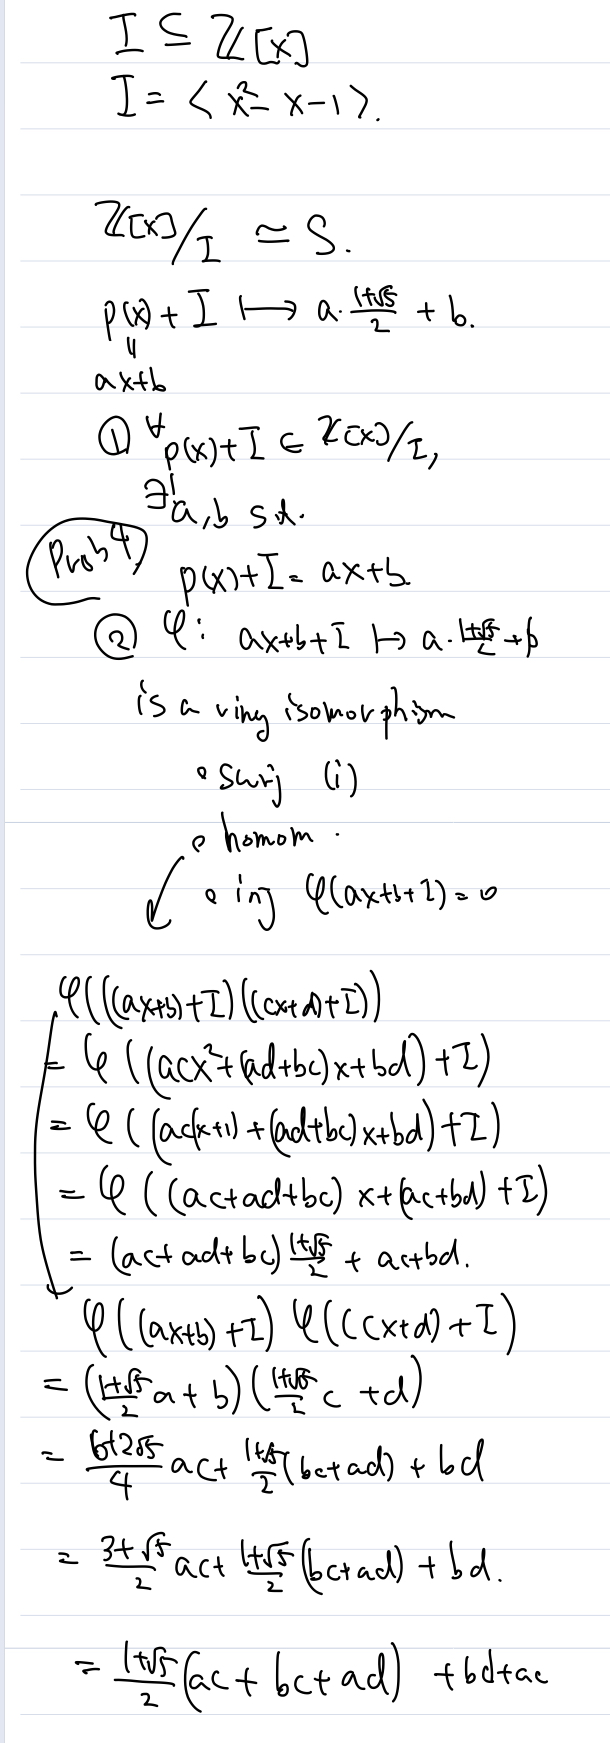 I ⊆ ℤ[x]
I = < x² - x - 1 >.
ℤ[x]/I ≃ S.
p(x) + I ⟼ a · (1+√5)/2 + b.
=
ax+b
① ∀ p(x)+I ∈ ℤ[x]/I,
∃! a, b s.t.
Prob 4)
p(x)+I = ax+b
② φ: ax+b+I ↦ a · (1+√5)/2 + b
is a ring isomorphism
• surj (i)
• homom.
• inj φ(ax+b+I) = 0
φ(((ax+b)+I)((cx+d)+I))
= φ((acx²+(ad+bc)x+bd)+I)
= φ((ac(x+1)+(ad+bc)x+bd)+I)
= φ((ac+ad+bc)x+(ac+bd)+I)
= (ac+ad+bc) (1+√5)/2 + ac+bd.
φ((ax+b)+I) φ((cx+d)+I)
= ((1+√5)/2 a + b)((1+√5)/2 c + d)
= (6+2√5)/4 ac + (1+√5)/2 (bc+ad) + bd
= (3+√5)/2 ac + (1+√5)/2 (bc+ad) + bd.
= (1+√5)/2 (ac+bc+ad) + bd+ac